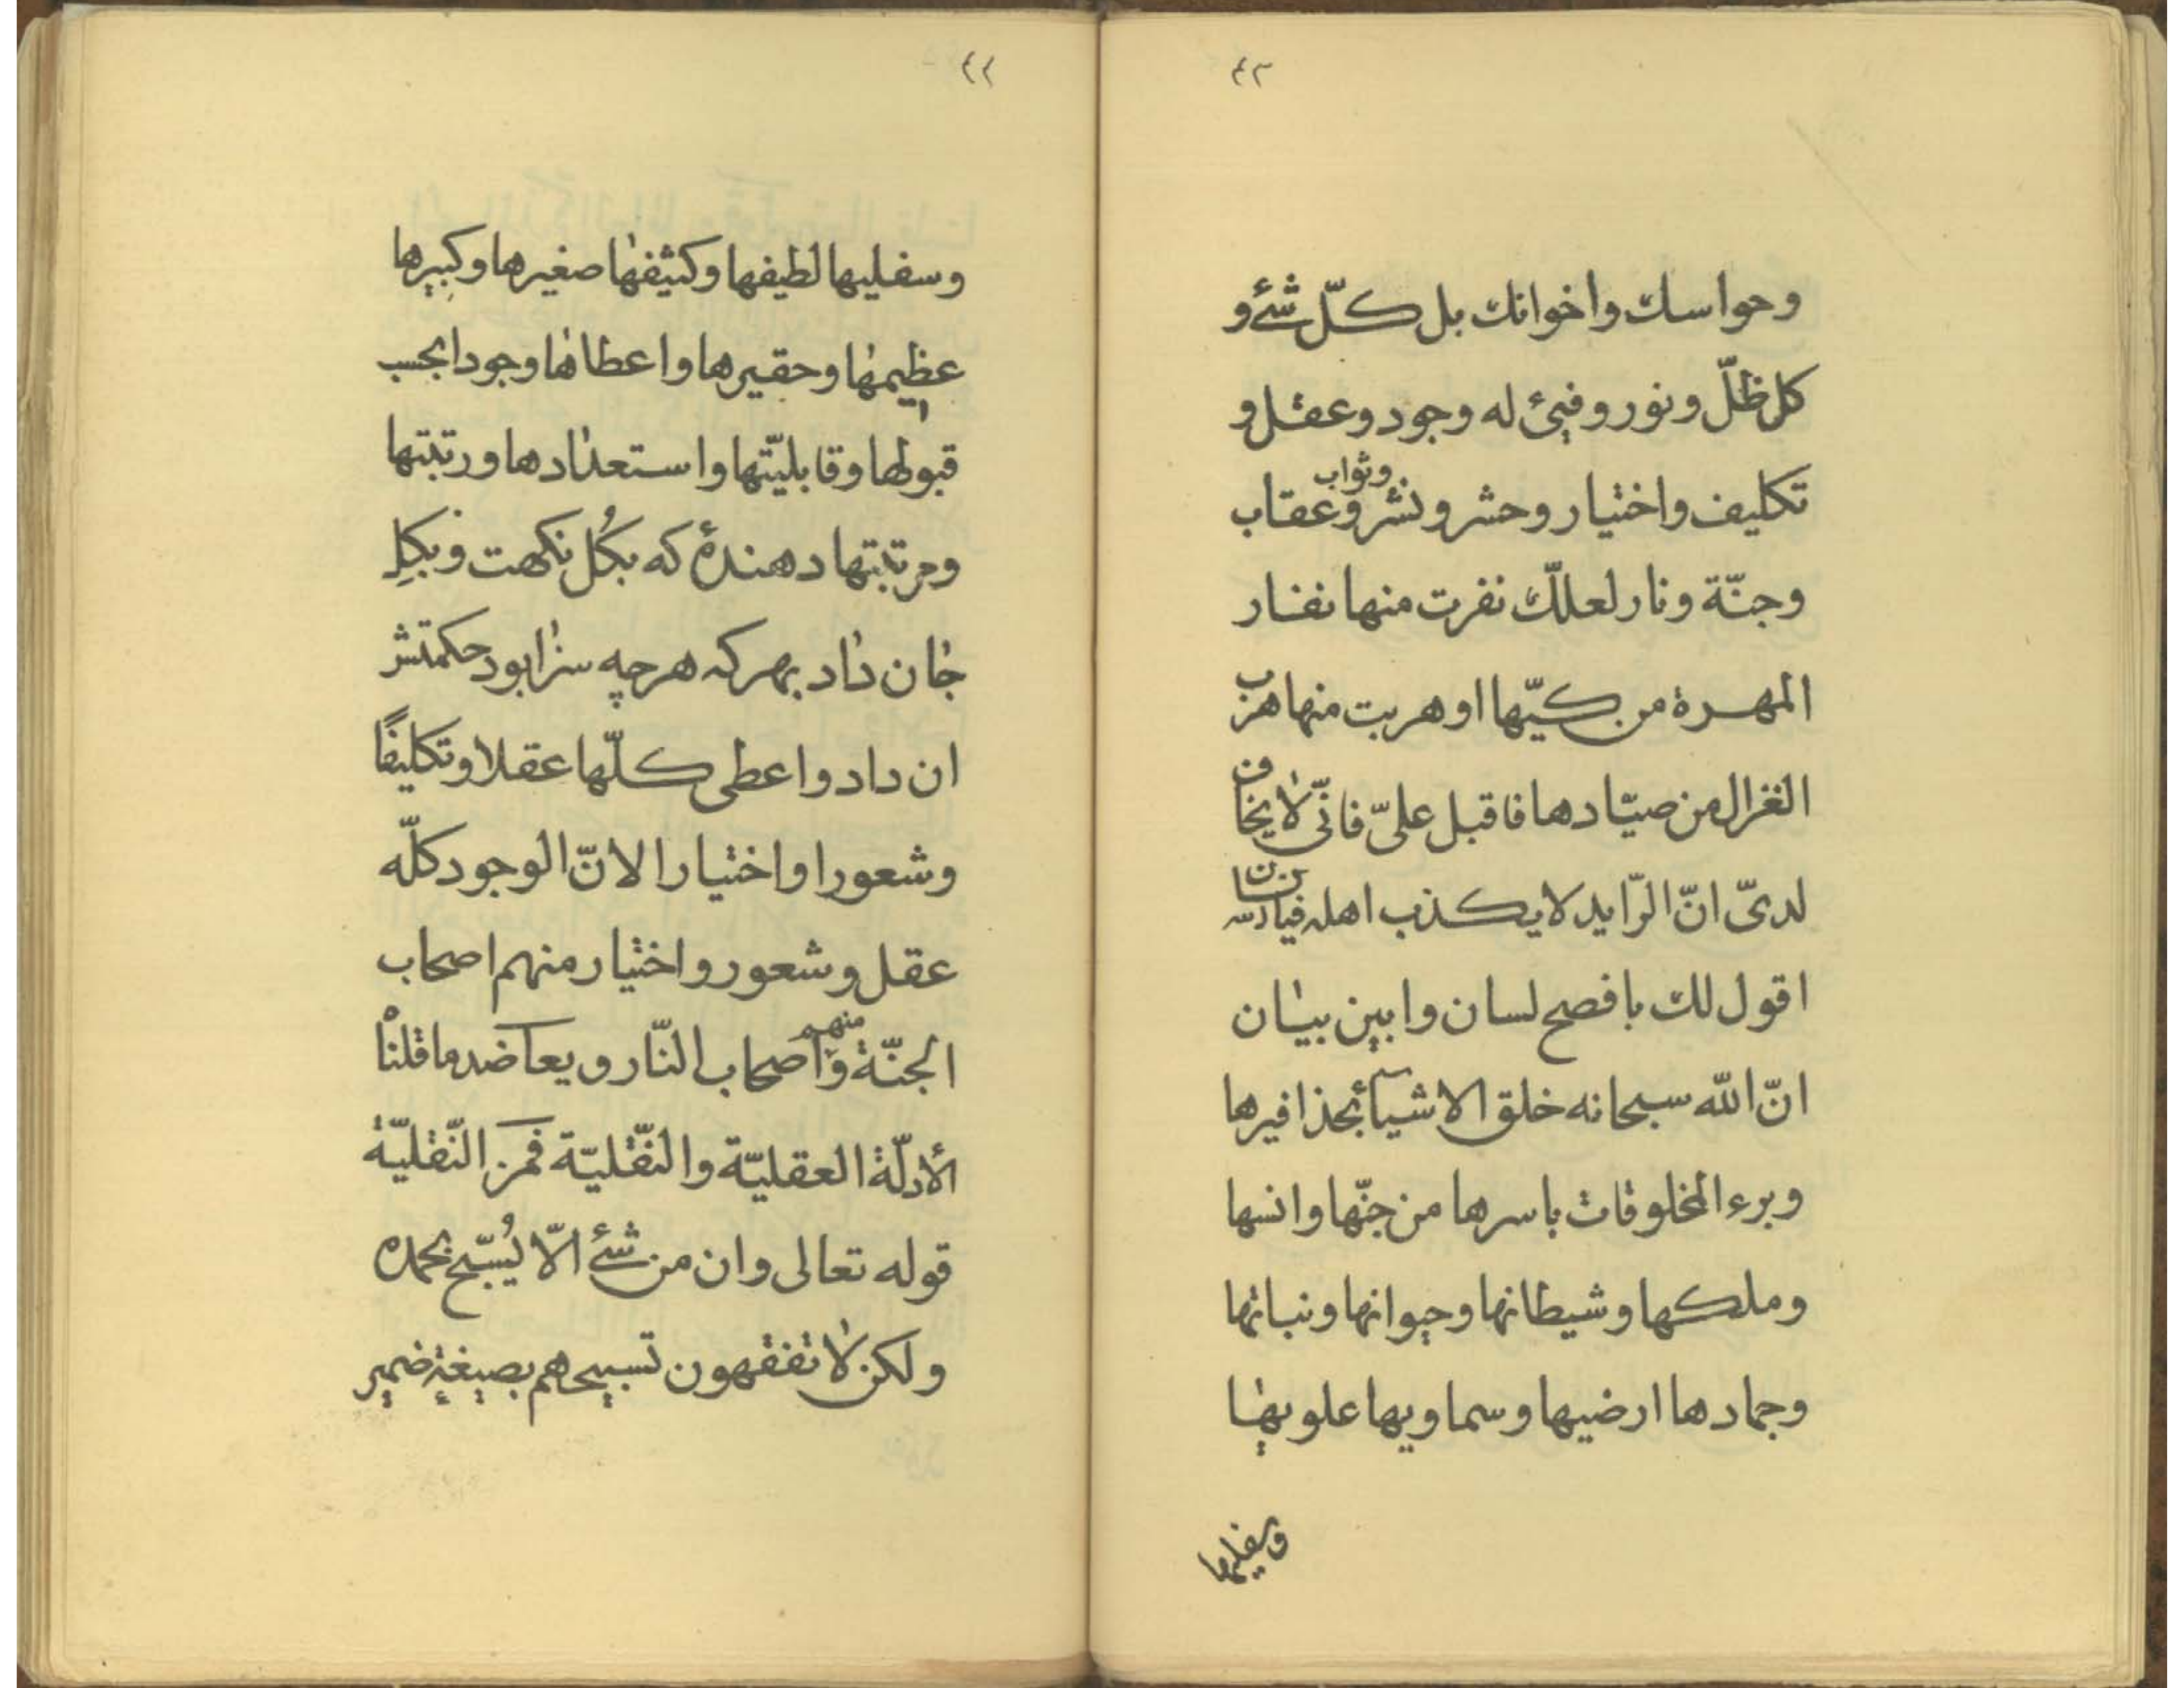 ٤٣
وحواسك واخوانك بل كلّ شئ و
كل ظلّ ونور وفيئ له وجود وعقل و
تكليف واختيار وحشر ونشر وثواب وعقاب
وجنّة ونار لعلّك نفرت منها نفار
المهرة من كيّها او هربت منها هرب
الغزال من صيّادها فاقبل علىّ فانّى لا يخاف
لدىّ انّ الرّايد لا يكذب اهله
اقول لك بافصح لسان وابين بيان
انّ الله سبحانه خلق الاشيآئ بحذافيرها
وبرء المخلوقات باسرها من جنّها وانسها
وملكها وشيطانها وحيوانها ونباتها
وجمادها ارضيها وسماويها علويها
وسفليها
٤٤
وسفليها لطيفها وكثيفها صغيرها وكبيرها
عظيمها وحقيرها واعطاها وجودا بحسب
قبولها وقابليّتها واستعدادها ورتبتها
ومرتبتها دهندۀ كه بكُل نكهت و بكِل
جان داد بهركه هرچه سزا بود حكمتش
ان داد واعطى كلّها عقلا وتكليفًا
وشعورا واختيارا لانّ الوجود كلّه
عقل وشعور واختيار منهم اصحاب
الجنّة ومنهم اصحاب النّار ويعاضد ما قلنا
الأدلّة العقليّة والنّقليّة فمن النّقليّة
قوله تعالى وان من شئ الّا يُسبّح بحمده
ولكن لا تفقهون تسبيحهم بصيغة ضمير